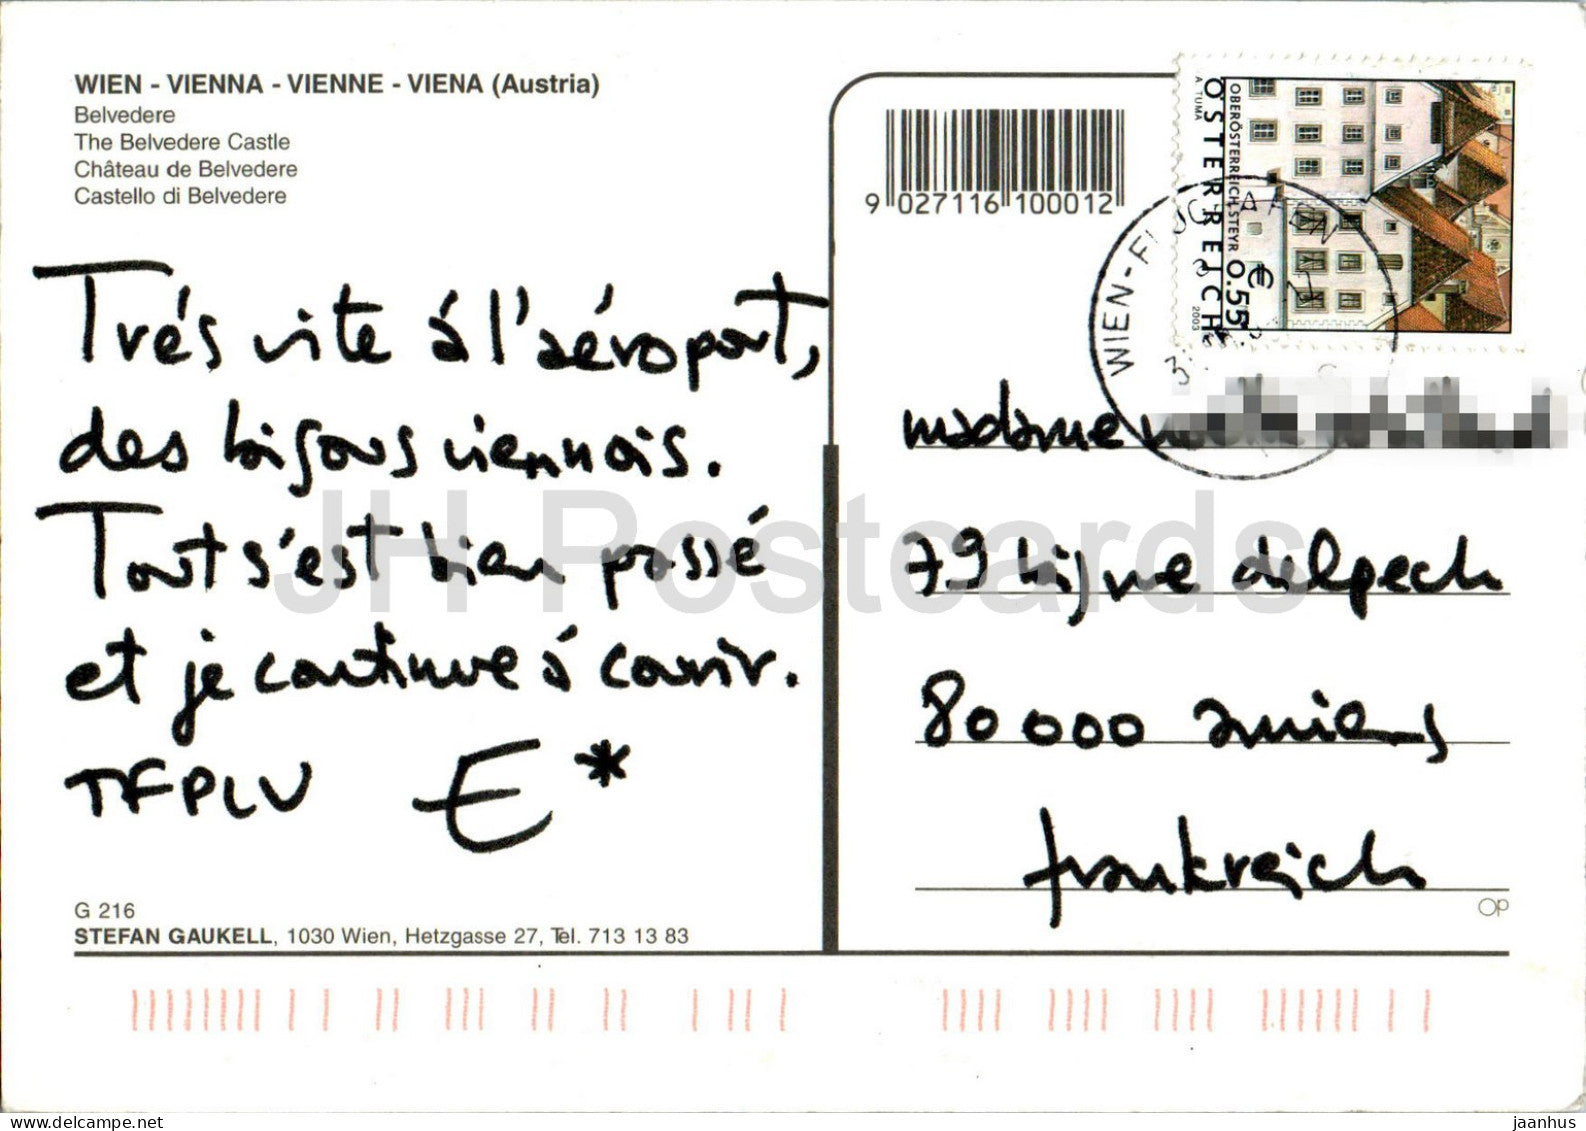 WIEN - VIENNA - VIENNE - VIENA (Austria)
Belvedere
The Belvedere Castle
Château de Belvedere
Castello di Belvedere
Trés vite á l'aéroport,
des bisous viennois.
Tout s'est bien passé
et je continue á courir.
TFPLV E*
G 216
STEFAN GAUKELL, 1030 Wien, Hetzgasse 27, Tel. 713 13 83
9 027116 100012
A. TUMA
ÖSTERREICH
OBERÖSTERREICH, STEYR
0.55 €
2003
WIEN-FLUGHAFEN
madame
79 ligne delpech
80 000 amiens
frankreich
OP
JH Postcards
delcampe.net
jaanhus